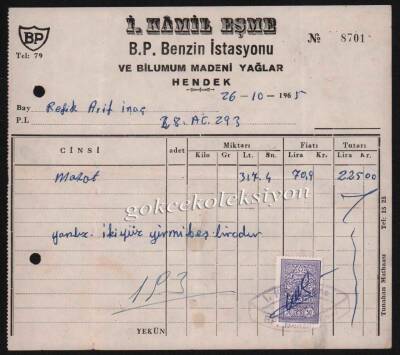 İ. KÂMİL EŞME
BP
B.P. Benzin İstasyonu
№ 8701
Tel: 79
VE BİLUMUM MADENİ YAĞLAR
HENDEK
26-10-1965
Bay Refik Arif inaç
P.L. 28.AC.293
CİNSİ adet Miktarı Fiatı Tutarı
Kilo Gr Lt. Sn. Lira Kr. Lira Kr.
Mazot 317.4 70,9 22500
gokcekoleksiyon
yanlız. ikiyüz yirmibeş liradır
YEKÛN
Tunahan Matbaası Tel: 15 25